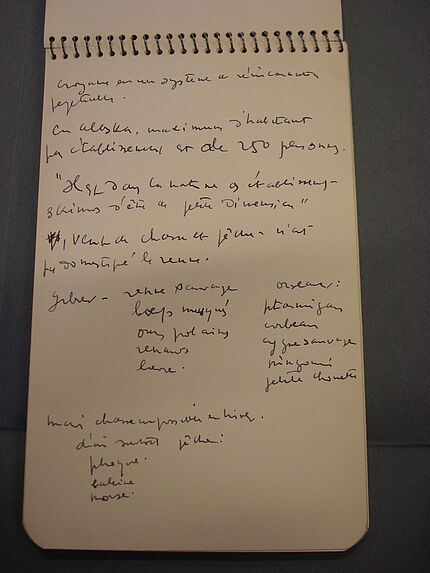 croyance en un système de réincarnation
perpétuelle.
En alaska, maximum d'habitant
par établissement est de 250 personnes.
"Il est dans la nature des établissements
eskimos d'être de petite dimension"
, vivent de chasse et pêche - n'ont
pas domestiqué le renne.
gibier - renne sauvage
loups
ours polaires
renards
lièvre.
oiseaux:
ptarmigan
corbeau
cygne sauvage
pingouin
petite chouette
mais chasse impossible en hiver.
d'où surtout pêche:
phoque.
baleine
morse.